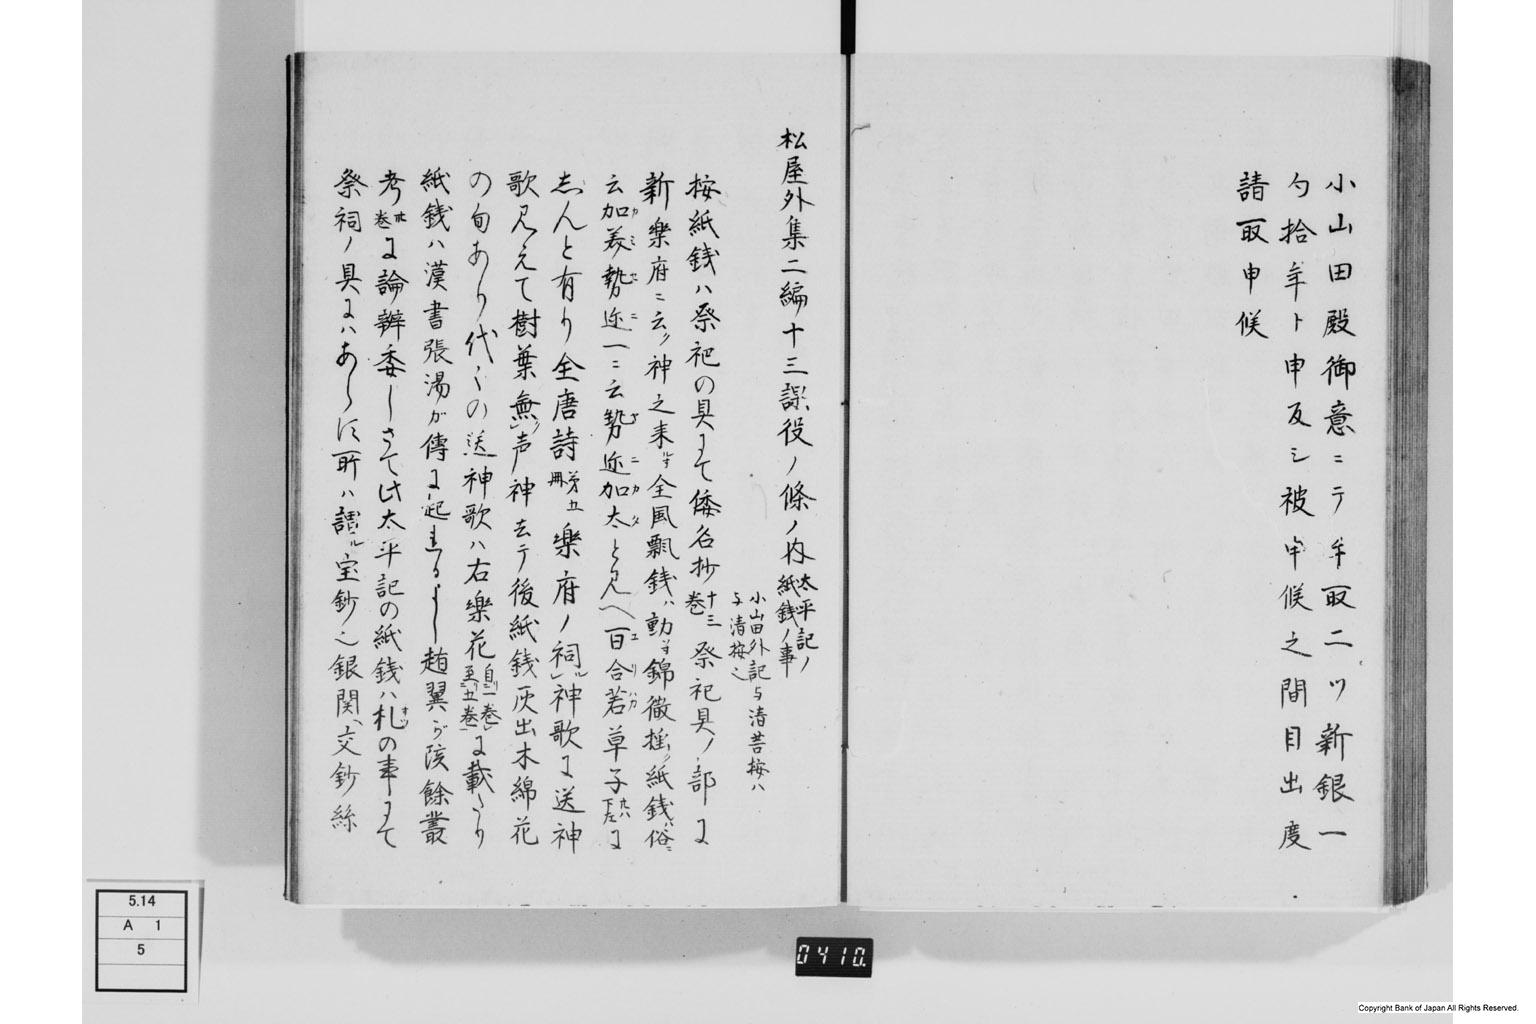 小山田殿御意ニテ半取二ツ新銀一
勺拾年ト申反シ被申候之間目出度
請取申候
松屋外集二編十三課役ノ條ノ内太平記ノ紙銭ノ事
小山田外記与清菩按ハ
与清按ヘ
按紙銭ハ祭祀の具にて倭名抄巻十三祭祀具ノ部に
新樂府ニ云ク神之来ルヤ全風飄銭ハ動キ錦徽揺ク紙銭ハ俗ニ
云加美勢迩一ニ云勢迩加太と見へ百合若草子九ハ下左に
志んと有り全唐詩第五冊樂府ノ祠ル神歌に送神
歌見えて樹葉無ク声神去テ後紙銭灰出木綿花
の句あり代々の送神歌ハ右樂花自一巻至五巻に載たり
紙銭ハ漢書張湯が傳に起れるよし趙翼が陔餘叢
考卅巻に論辨委しさて此太平記の紙銭ハ札の事にて
祭祠ノ具にハあらに所ハ謂ル宝鈔ヘ銀関ハ交鈔絲
5.14
A 1
5
0410
Copyright Bank of Japan All Rights Reserved.